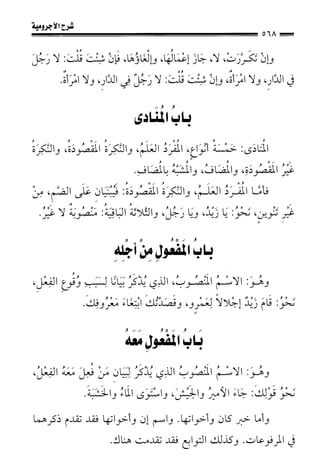 شرح الآجرومية
٥٦٨
وَإِنْ تَكَرَّرَتْ، لا، جَازَ إِعْمَالُهَا، وَإِلْغَاؤُهَا، فَإِنْ شِئْتَ قُلْتَ: لا رَجُلَ
في الدَّارِ، ولا امْرَأَةَ، وَإِنْ شِئْتَ قُلْتَ: لا رَجُلٌ فِي الدَّارِ، ولا امْرَأَةٌ.
بَابُ الْمُنَادَى
الْمُنَادَى: خَمْسَةُ أَنْوَاعٍ، الْمُفْرَدُ الْعَلَمُ، والنَّكِرَةُ الْمَقْصُودَةُ، والنَّكِرَةُ
غَيْرُ الْمَقْصُودَةِ، والْمُضَافُ، والْمُشَبَّهُ بِالْمُضَافِ.
فأمَّا الْمُفْرَدُ العَلَـمُ، والنَّكِرَةُ الْمَقْصُودَةُ: فَيُبْنَيَانِ عَلَى الضَّمِّ، مِنْ
غَيْرِ تَنْوِينٍ، نَحْوُ: يَا زَيْدُ، ويَا رَجُلُ، والثَّلاثَةُ البَاقِيَةُ: مَنْصُوبَةٌ لا غَيْرُ.
بَابُ الْمَفْعُولِ مِنْ أَجْلِهِ
وهُـوَ: الاسْـمُ الْمَنْصُوبُ، الذي يُذْكَرُ بَيَانًا لِسَبَبِ وُقُوعِ الفِعْلِ،
نَحْوُ: قَامَ زَيْدٌ إِجْلالاً لِعَمْرٍو، وقَصَدْتُكَ ابْتِغَاءَ مَعْرُوفِكَ.
بَابُ الْمَفْعُولِ مَعَهُ
وهُـوَ: الاسْـمُ الْمَنْصُوبُ الذي يُذْكَرُ لِبَيَانِ مَنْ فُعِلَ مَعَهُ الفِعْلُ،
نَحْوُ قَوْلِكَ: جَاءَ الأَمِيرُ والجَيْشَ، واسْتَوَى الْمَاءُ والخَشَبَةَ.
وأما خبر كان وأخواتها. واسم إن وأخواتها فقد تقدم ذكرهما
في المرفوعات. وكذلك التوابع فقد تقدمت هناك.